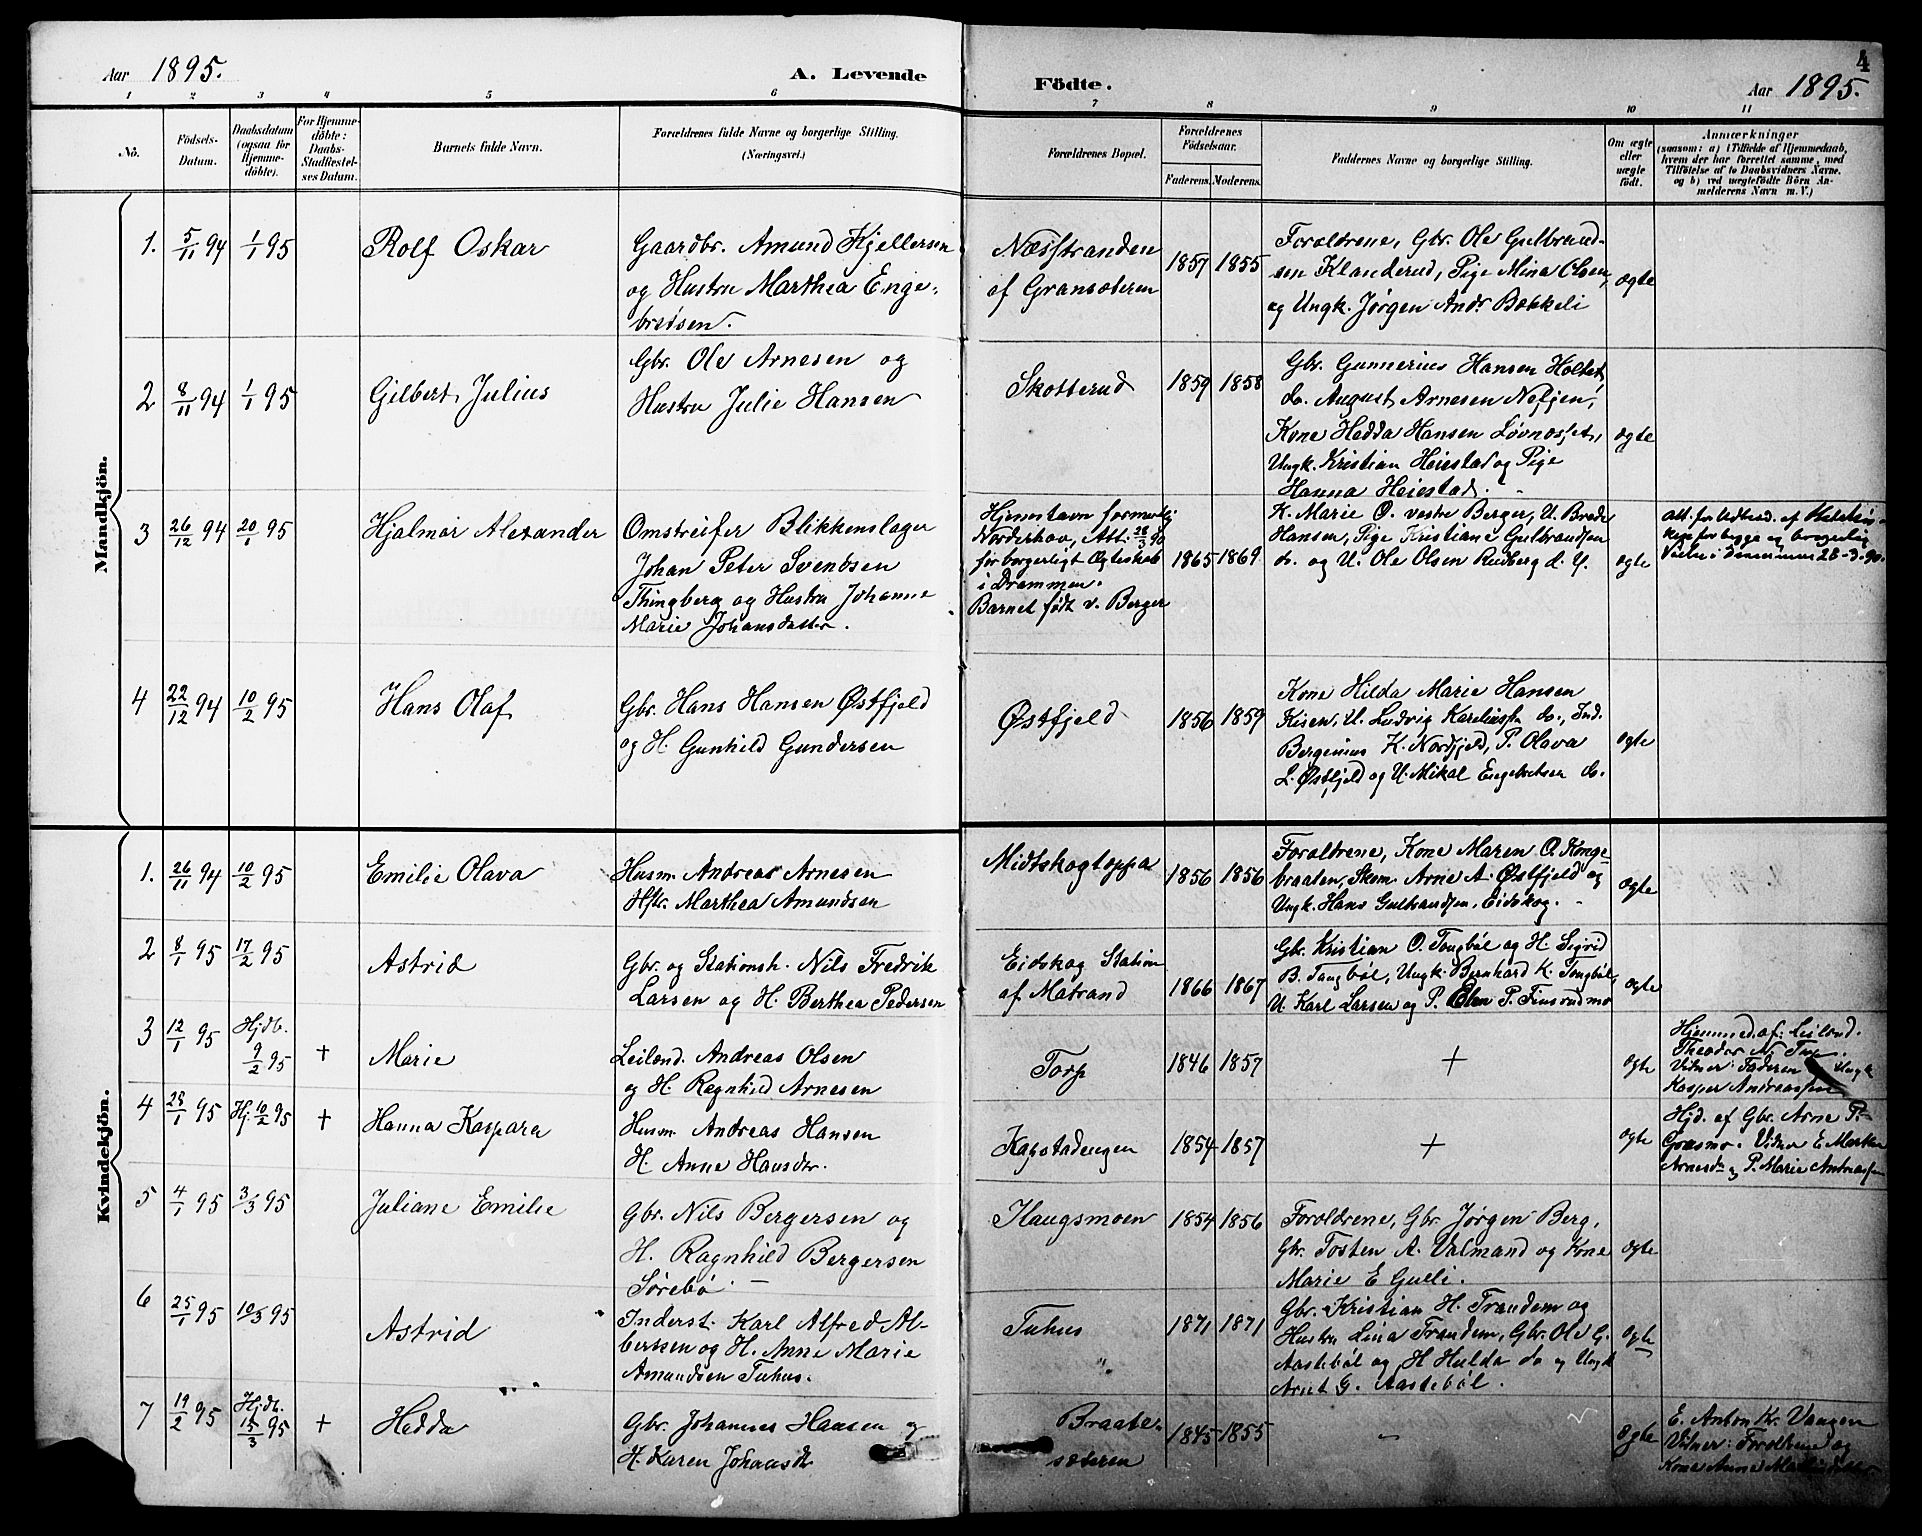 4
Aar 1895.
A. Levende
Födte.
Aar 1895.
1 2 3 4 5 6 7 8 9 10 11
Nö.
Födsels-
Datum.
Daabsdatum
(ogsaa for
Hjemme-
döbte).
For Hjemme-
döbte:
Daabs-
Stadfæstel-
ses Datum.
Barnets fulde Navn.
Forældrenes fulde Navne og borgerlige Stilling.
(Næringsvei.)
Forældrenes Bopæl.
Forældrenes
Födselsaar.
Faderens. Moderens.
Faddernes Navne og borgerlige Stilling.
Om ægte
eller
uægte
födt.
Anmærkninger
(saasom: a) i Tilfælde af Hjemmedaab,
hvem der har forrettet samme, med
Tilföielse af to Daabsvidners Navne.
og b) ved uægtefödte Börn An-
melderens Navn m. V.)
Mandkjön.
1. 5/11 94 1/1 95 Rolf Oskar
Gaardbr. Amund Kjellersen
og Hustru Marthea Enge-
bretsen.
Næsstranden
af Gransæteren
1857 1855
Forældrene, Gbr. Ole Gulbrand-
sen Klanderud, Pige Mina Olsen,
og Ungk. Jørgen Andr. Bækkeli
ægte
2 8/11 94 1/1 95 Gilbert Julius
Gbr. Ole Arnesen og
Hustru Julie Hansen
Skotterud
1859 1858
Gbr. Gunnerius Hansen Holtet,
do. August Arnesen
Kone Hedda Hansen Løvnæsset,
Ungk. Kristian Heiestad og Pige
Hanna Heiestad.
ægte
3 26/12 94 20/1 95 Hjalmar Alexander
Omstreifer Blikkenslager
Johan Peter Svendsen
Thingberg og Hustru Johanne
Marie Johansdatter.
Hjemstavn formentlig
Norderhov, Att. 28/3 90
for borgerligt Ægteskab
i Drammen.
Barnet født v. Berger
1865 1869
K. Marie O. vestre Berger, U. Brede
Hansen, Pige Kristiane Gulbrandsen
do. og U. Ole Olsen Rudberg d. Y.
ægte
att. for Udtræd. af
28-3-90.
4 22/12 94 10/2 95 Hans Olaf
Gbr. Hans Hansen Østfjeld
og H. Gunhild Gundersen
Østfjeld
1856 1859
Kone Hilda Marie Hansen
Kisen, U. Ludvig Kareliuss. do., Ind.
Bergenius K. Nordfjeld, P. Olava
L. Østfjeld og U. Mikal Engebretsen do.
ægte
Kvindekjön.
1. 26/11 94 10/2 95 Emilie Olava
Husm. Andreas Arnesen
Hstr. Marthea Amundsen
Midtskogtoppa
1856 1856
Forældrene, Kone Maren O. Konge-
braaten, Skom. Arne A. Østfjeld og
Ungk. Hans Gulbrandsen, Eidskog.
ægte
2 8/1 95 17/2 95 Astrid
Gbr. og Stationsh. Nils Fredrik
Larsen og H. Berthea Pedersen
Eidskog Station
af Matrand
1866 1867
Gbr. Kristian O. Tangbøl og H. Sigrid
B. Tangbøl, Ungk. Bernhard K. Tangbøl,
U. Karl Larsen og P. Elen P. Finsrudmo
ægte
3 12/1 95 Hjdb.
9/2 95 + Marie
Leilænd. Andreas Olsen
og H. Ragnhild Arnesen
Torp
1846 1857
+
ægte
Hjemmed. af: Leilænd.
Theodor N. Torp.
Vidner: Faderen Ungk
Kasper Andreassen
4 28/1 95 Hj. 10/2 95 + Hanna Kaspara
Husm. Andreas Hansen
H. Anne Hansdtr.
Kagstadengen
1854 1857
+
ægte
Hjd. af Gbr. Arne P.
Græsmo. Vidner E. Marthe
Arnesd. og P. Marie Andreassen
5 4/1 95 3/3 95 Juliane Emilie
Gbr. Nils Bergersen og
H. Ragnhild Bergersen
Sørebø.
Haugsmoen
1854 1856
Forældrene, Gbr. Jørgen Berg,
Gbr. Tosten A. Valmand og Kone
Marie E Gulli.
ægte
6 25/1 95 10/3 95 Astrid
Inderst. Karl Alfred Al-
bertsen og H. Anne Marie
Amundsen Tuhus.
Tuhus
1871 1871
Gbr. Kristian H. Trandem og
Hustru Lina Trandem, Gbr. Ole G.
Aastebøl og H Hulda do og Ungk
Arnt G. Aastebøl.
ægte
7 19/2 95 Hjdb.
15/3 95 + Hedda
Gbr. Johannes Hansen og
H. Karen Johansdtr
Braate-
sæteren
1845 1855
-
ægte
E. Anton Kr. Vangen
Vidner: Forældrene og
Kone Anne